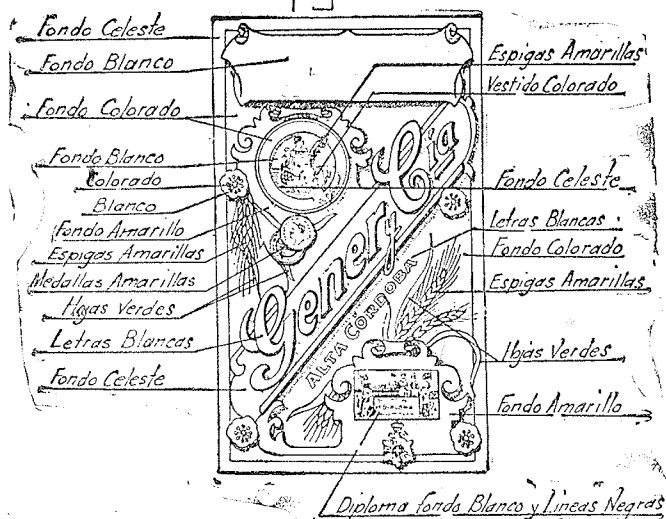 Fondo Celeste
Fondo Blanco
Fondo Colorado
Fondo Blanco
Colorado
Blanco
Fondo Amarillo
Espigas Amarillas
Medallas Amarillas
Hojas Verdes
Letras Blancas
Fondo Celeste
Gener y Cía
ALTA CÓRDOBA
Espigas Amarillas
Vestido Colorado
Fondo Celeste
Letras Blancas
Fondo Colorado
Espigas Amarillas
Hojas Verdes
Fondo Amarillo
Diploma fondo Blanco y Lineas Negras